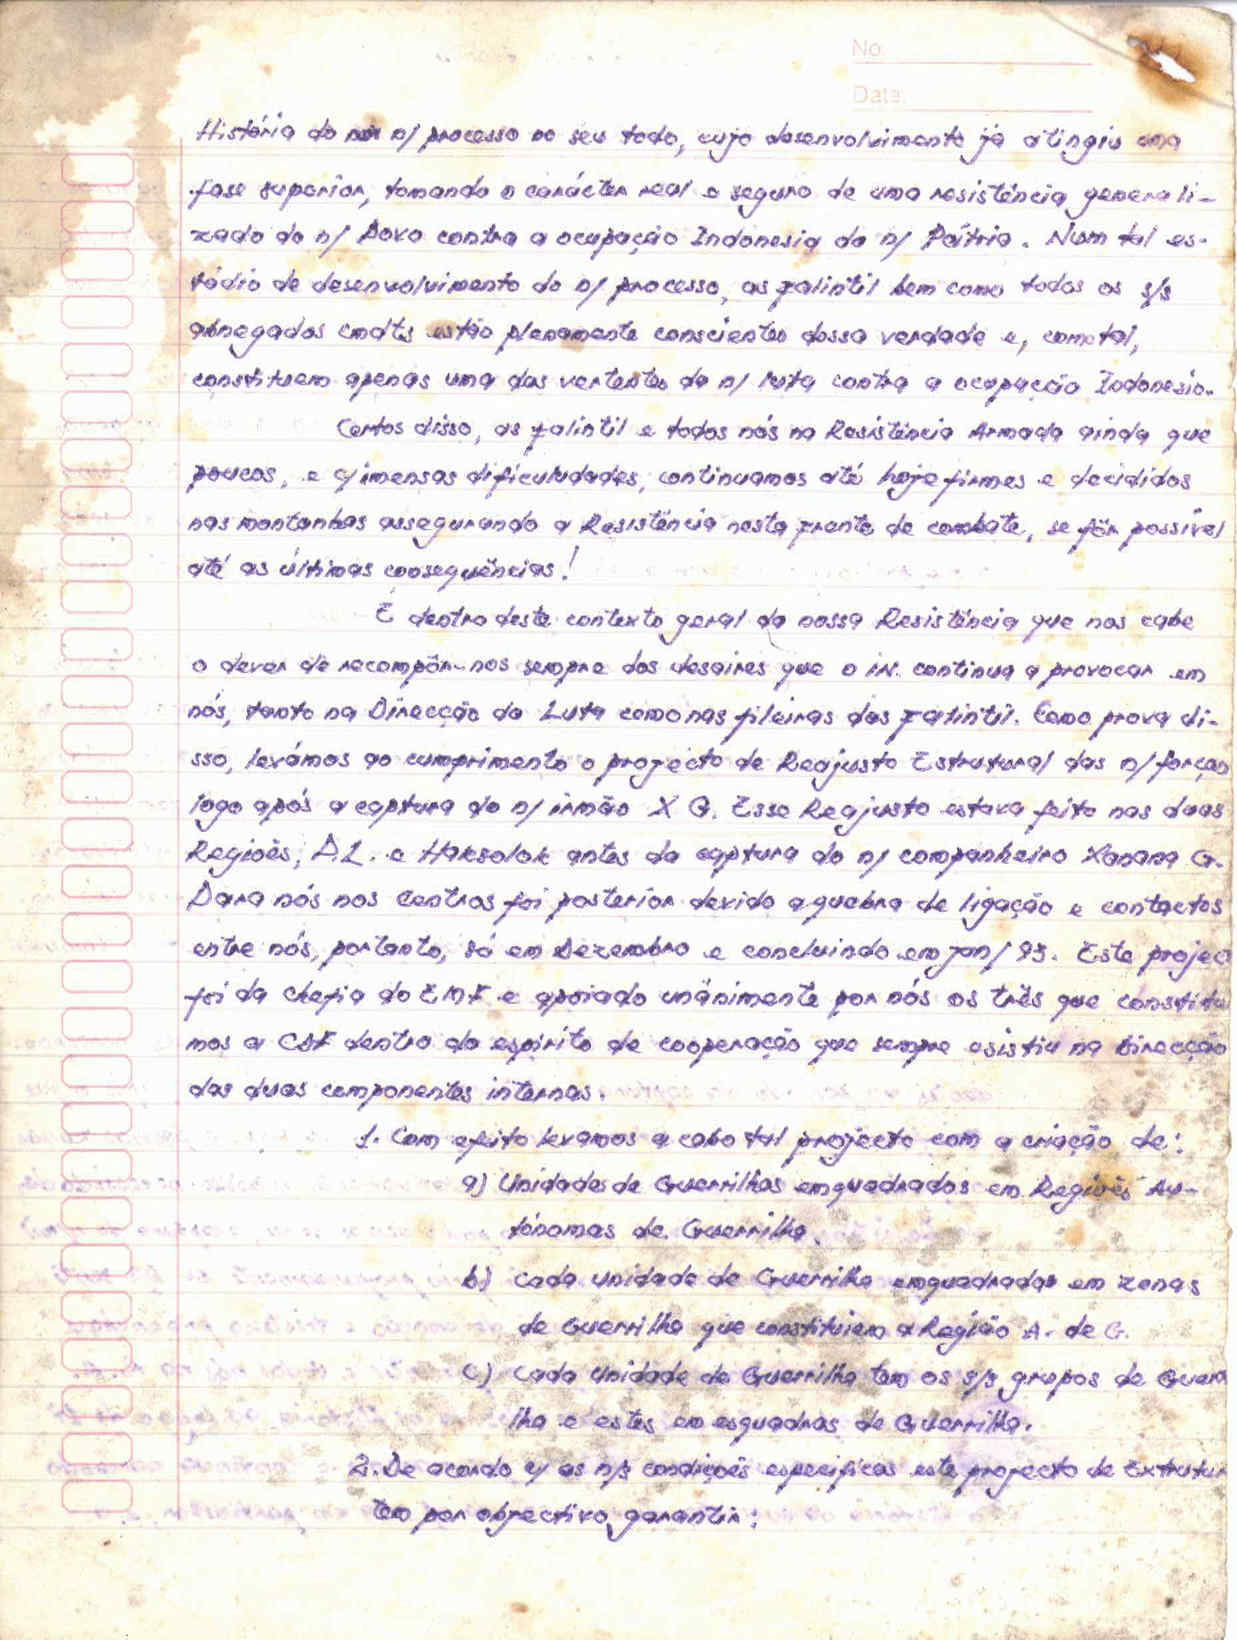 No.
Date.
História do n/ processo no seu todo, cujo desenvolvimento já atingiu uma
fase superior, tomando o carácter real e seguro de uma resistência generali-
zado do n/ Povo contra a ocupação Indonesia da n/ Pátria. Num tal es-
tádio de desenvolvimento do n/ processo, as falintil bem como todos os s/s
abnegados cmdts estão plenamente conscientes dessa verdade e, como tal,
constituem apenas uma das vertentes da n/ luta contra a ocupação Indonesia.
Certos disso, as falintil e todos nós na Resistência Armada ainda que
poucos, e c/ imensas dificuldades, continuamos até hoje firmes e decididos
nas montanhas assegurando a Resistência nesta frente de combate, se fôr possível
até as últimas consequências!
É dentro deste contexto geral da nossa Resistência que nos cabe
o dever de recompôr-nos sempre dos desaires que o in. continua a provocar em
nós, tanto na Direcção da Luta como nas fileiras das falintil. Como prova di-
sso, levámos ao cumprimento o projecto de Reajusto Estrutural das n/ forças
logo após a captura do n/ irmão X G. Esse Reajusto estava feito nas duas
Regiões, A L. e Haksolok antes da captura do n/ companheiro Xanana G.
Para nós nos Centros foi posterior devido a quebra de ligação e contactos
entre nós, portanto, só em Dezembro e concluindo em Jan/ 93. Este projec
foi da chefia do EMF e apoiado unânimente por nós os três que constitu
mos a CDF dentro do espírito de cooperação que sempre esistiu na Direcção
das duas componentes internas.
1. Com efeito levamos a cabo tal projecto com a criação de:
a) Unidades de Guerrilhas emquadrados em Regiões Au-
tónomas de Guerrilha.
b) Cada unidade de Guerrilha emquadradas em zonas
de Guerrilha que constituiem a Região A. de G.
c) Cada Unidade de Guerrilha tem os s/s grupos de Guerri
lha e estes em esquadras de Guerrilha.
2. De acordo c/ as n/s condições especificas este projecto de Extrutur
tem por objectivo garantir: